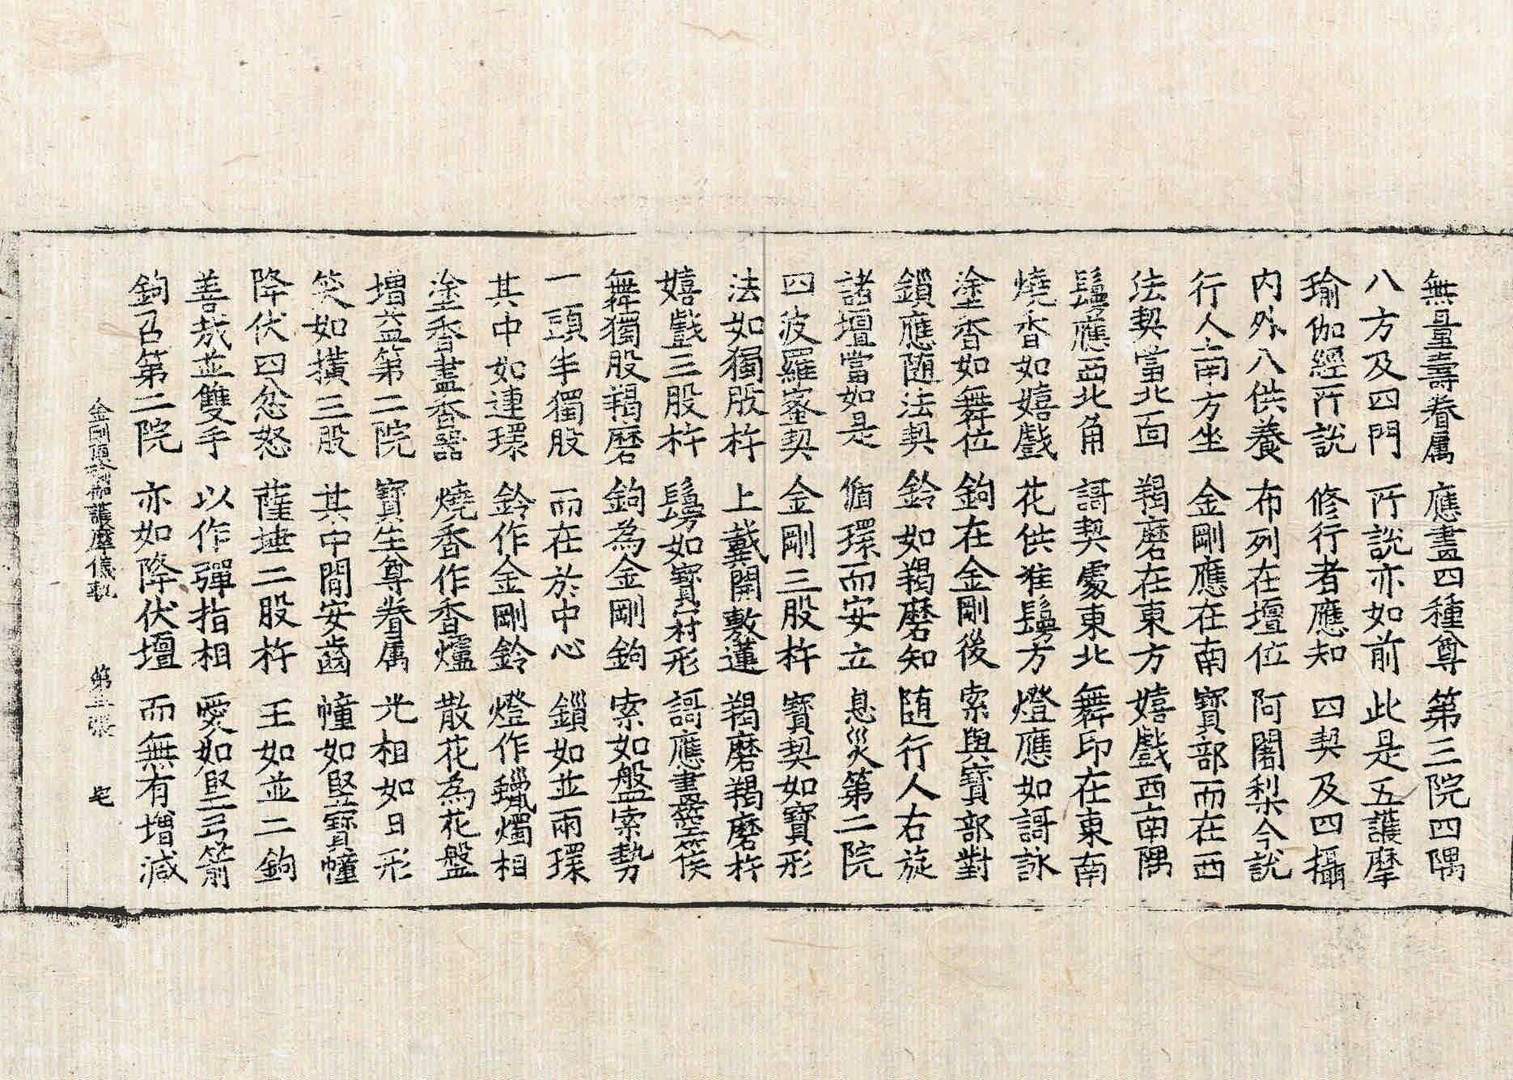 無量壽眷属 應畫四種尊 第三院四隅
八方及四門 所說亦如前 此是五護摩
瑜伽經所說 修行者應知 四契及四攝
內外八供養 布列在壇位 阿闍梨今說
行人南方坐 金剛應在南 寶部而在西
法契當北面 羯磨在東方 嬉戲西南隅
鬘應西北角 謌契處東北 舞印在東南
燒香如嬉戲 花供准鬘方 燈應如謌詠
塗香如舞位 鉤在金剛後 索與寶部對
鎖應随法契 鈴如羯磨知 随行人右旋
諸壇當如是 循環而安立 息災第二院
四波羅蜜契 金剛三股杵 寶契如寶形
法如獨股杵 上戴開敷蓮 羯磨羯磨杵
嬉戲三股杵 鬘如寶冠形 謌應畫箜篌
舞獨股羯磨 鉤為金剛鉤 索如盤索勢
一頭半獨股 而在於中心 鎖如並兩環
其中如連環 鈴作金剛鈴 燈作蠟燭相
塗香畫香器 燒香作香爐 散花為花盤
增益第二院 寶生尊眷属 光相如日形
笑如橫三股 其中間安齒 幢如堅寶幢
降伏四忿怒 薩埵二股杵 王如並二鉤
善哉並雙手 以作彈指相 愛如堅弓箭
鉤召第二院 亦如降伏壇 而無有增減
金剛頂瑜伽護摩儀軌 第三張 宅